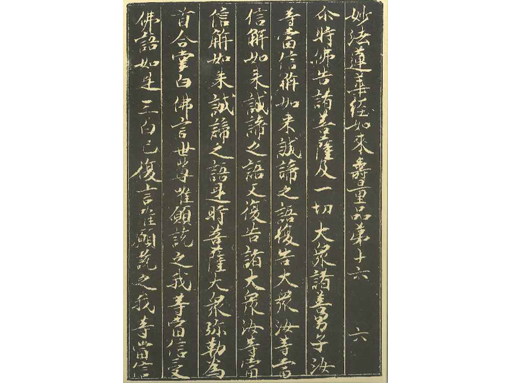 妙法蓮華經如來壽量品第十六 六
尒時佛告諸菩薩及一切大衆諸善男子汝
等當信解如来誠諦之語復告大衆汝等當
信解如来誠諦之語又復告諸大衆汝等當
信解如来誠諦之語是時菩薩大衆弥勒為
首合掌白佛言世尊唯願說之我等當信受
佛語如是三白已復言唯願說之我等當信